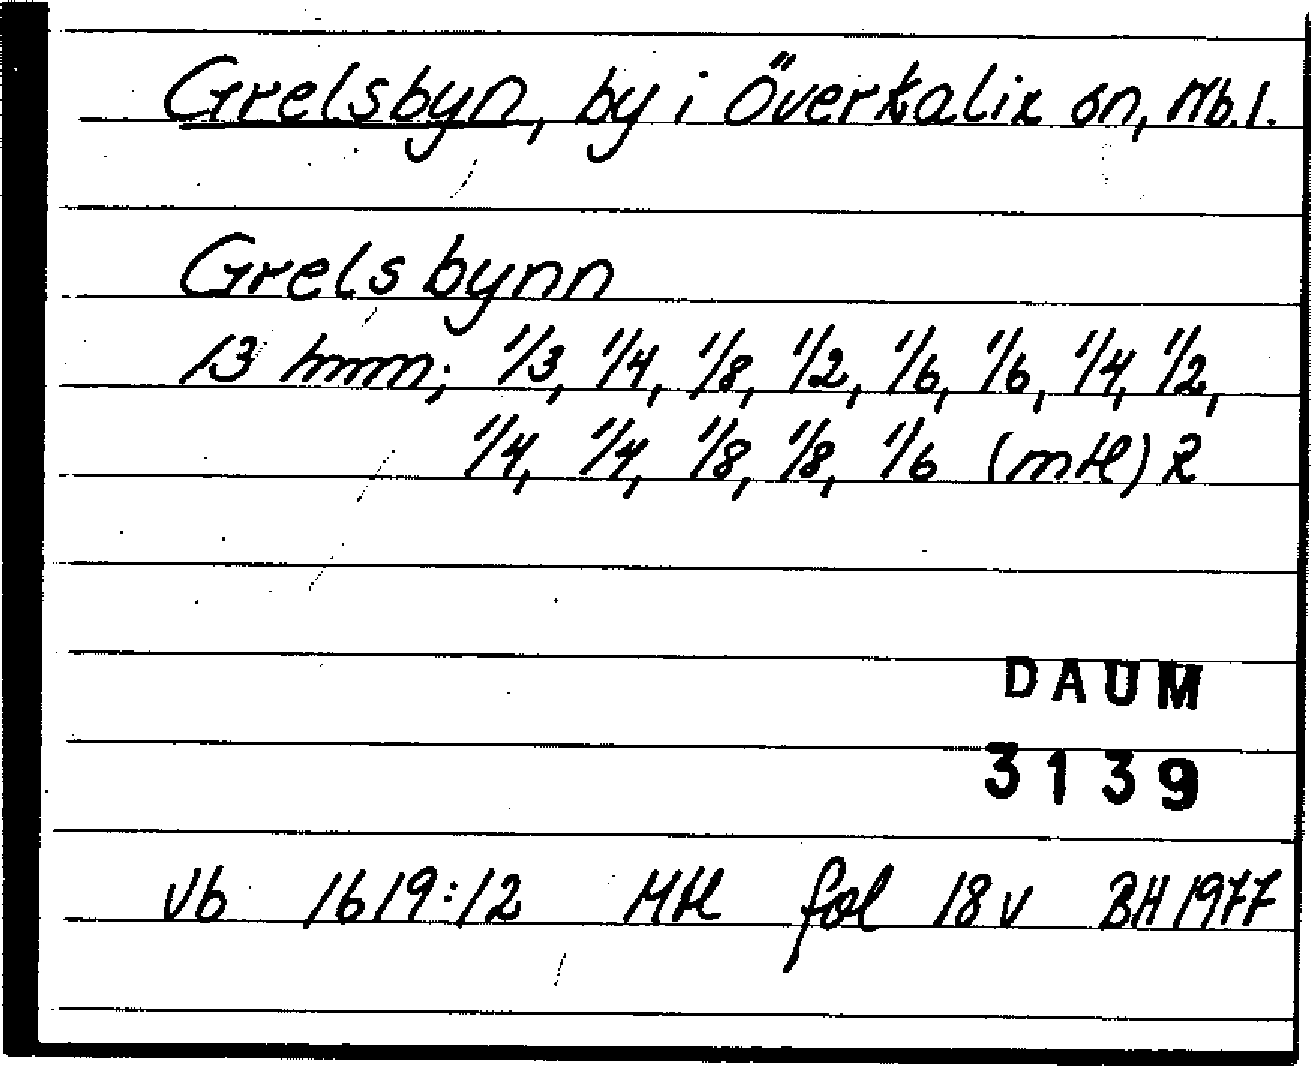 Grelsbyn, by i Överkalix sn, Nb.l.
Grelsbynn
13 hmm; 1/3, 1/4, 1/8, 1/2, 1/6, 1/6, 1/4, 1/2,
1/4, 1/4, 1/8, 1/8, 1/6 (mtl) R
DAUM
3139
Vb 1619:12 Mtl fol 18v BH 1977